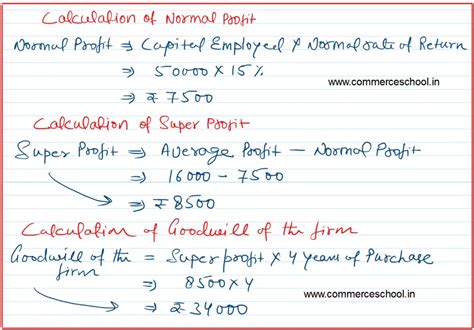 Calculation of Normal Profit
Normal Profit ⇒ Capital Employed × Normal rate of Return
⇒ 50000 × 15%
www.commerceschool.in
⇒ ₹ 7500
Calculation of Super Profit
Super Profit ⇒ Average Profit – Normal Profit
⇒ 16000 – 7500
⇒ ₹ 8500
Calculation of Goodwill of the firm
Goodwill of the firm = Super profit × 4 years of Purchase
⇒ 8500 × 4
www.commerceschool.in
⇒ ₹ 34000